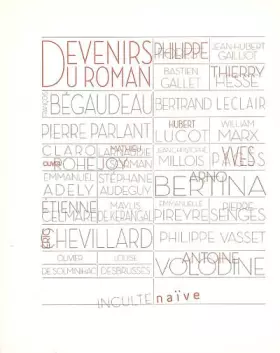 DEVENIRS
DU ROMAN
PHILIPPE
JEAN-HUBERT
GAILLIOT
BASTIEN
GALLET
THIERRY
HESSE
FRANÇOIS
BÉGAUDEAU
BERTRAND LECLAIR
PIERRE PARLANT
HUBERT
LUCOT
WILLIAM
MARX
CLARO
MATHIEU
OLIVER ROHE
JEAN-CHRISTOPHE
MILLOIS
YVES
PAGÈS
EMMANUEL
ADELY
STÉPHANE
AUDEGUY
ARNO
BERTINA
ÉTIENNE
CELMARE
MAYLIS
DE KERANGAL
EMMANUELLE
PIREYRE
PIERRE
SENGES
ÉRIC CHEVILLARD
PHILIPPE VASSET
OLIVIER
DE SOLMINIHAC
LOUISE
DESBRUSSES
ANTOINE
VOLODINE
INCULTE naïve